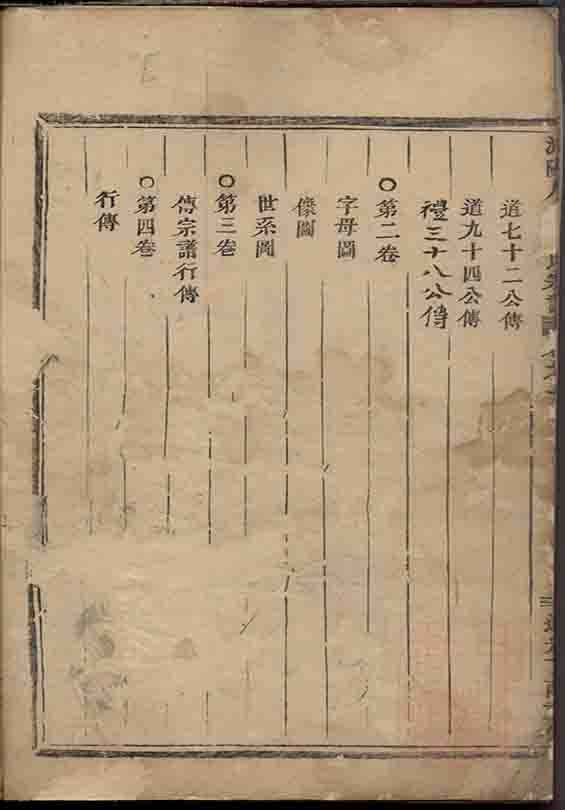 道七十二公傳
道九十四公傳
禮三十八公傳
○第二卷
字母圖
像圖
世系圖
○第三卷
傳宗譜行傳
○第四卷
行傳